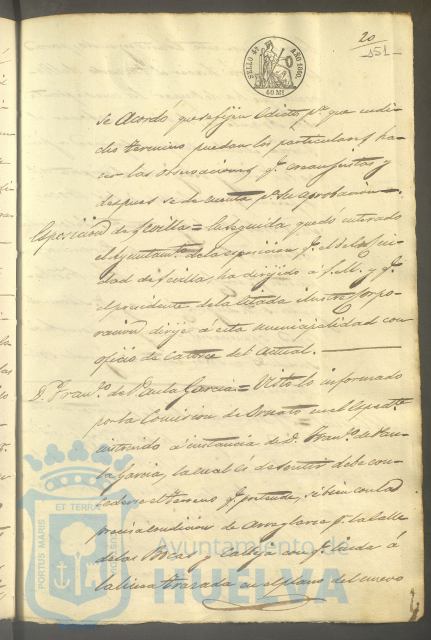 20
151
SELLO 4º AÑO 1860.
40 Ms
se Acordó, que se fijen Edictos pª que en di-
cho termino puedan los particulares ha-
cer las observaciones q.e crean justas y
despues se dé cuenta pª su aprobacion=
Esposicion de Sevilla= En seguida quedó enterado
el Ayuntamtº de la esposicion q.e el de la Ciu-
dad de Sevilla, ha dirijido a S. M. y q.e
el presidente de la citada ilustre Corpo-
racion, dirije a esta municipalidad con
oficio de Catorce del Actual.
D. Franº de Paula Garcia= Visto lo informado
por la Comision de Ornato en el Espedte
instruido a instancia de D. Franº de Pau-
la Garcia, la cual es de sentir debe con-
cederse el terreno q.e pretende, si bien con la
precisa condicion de Arreglarse pª la Calle
de las Bocas y Calleja en q.e linda á
la linea trazada en el plano del nuevo
PORTUS MARIS ET TERRAE
Ayuntamiento de
HUELVA